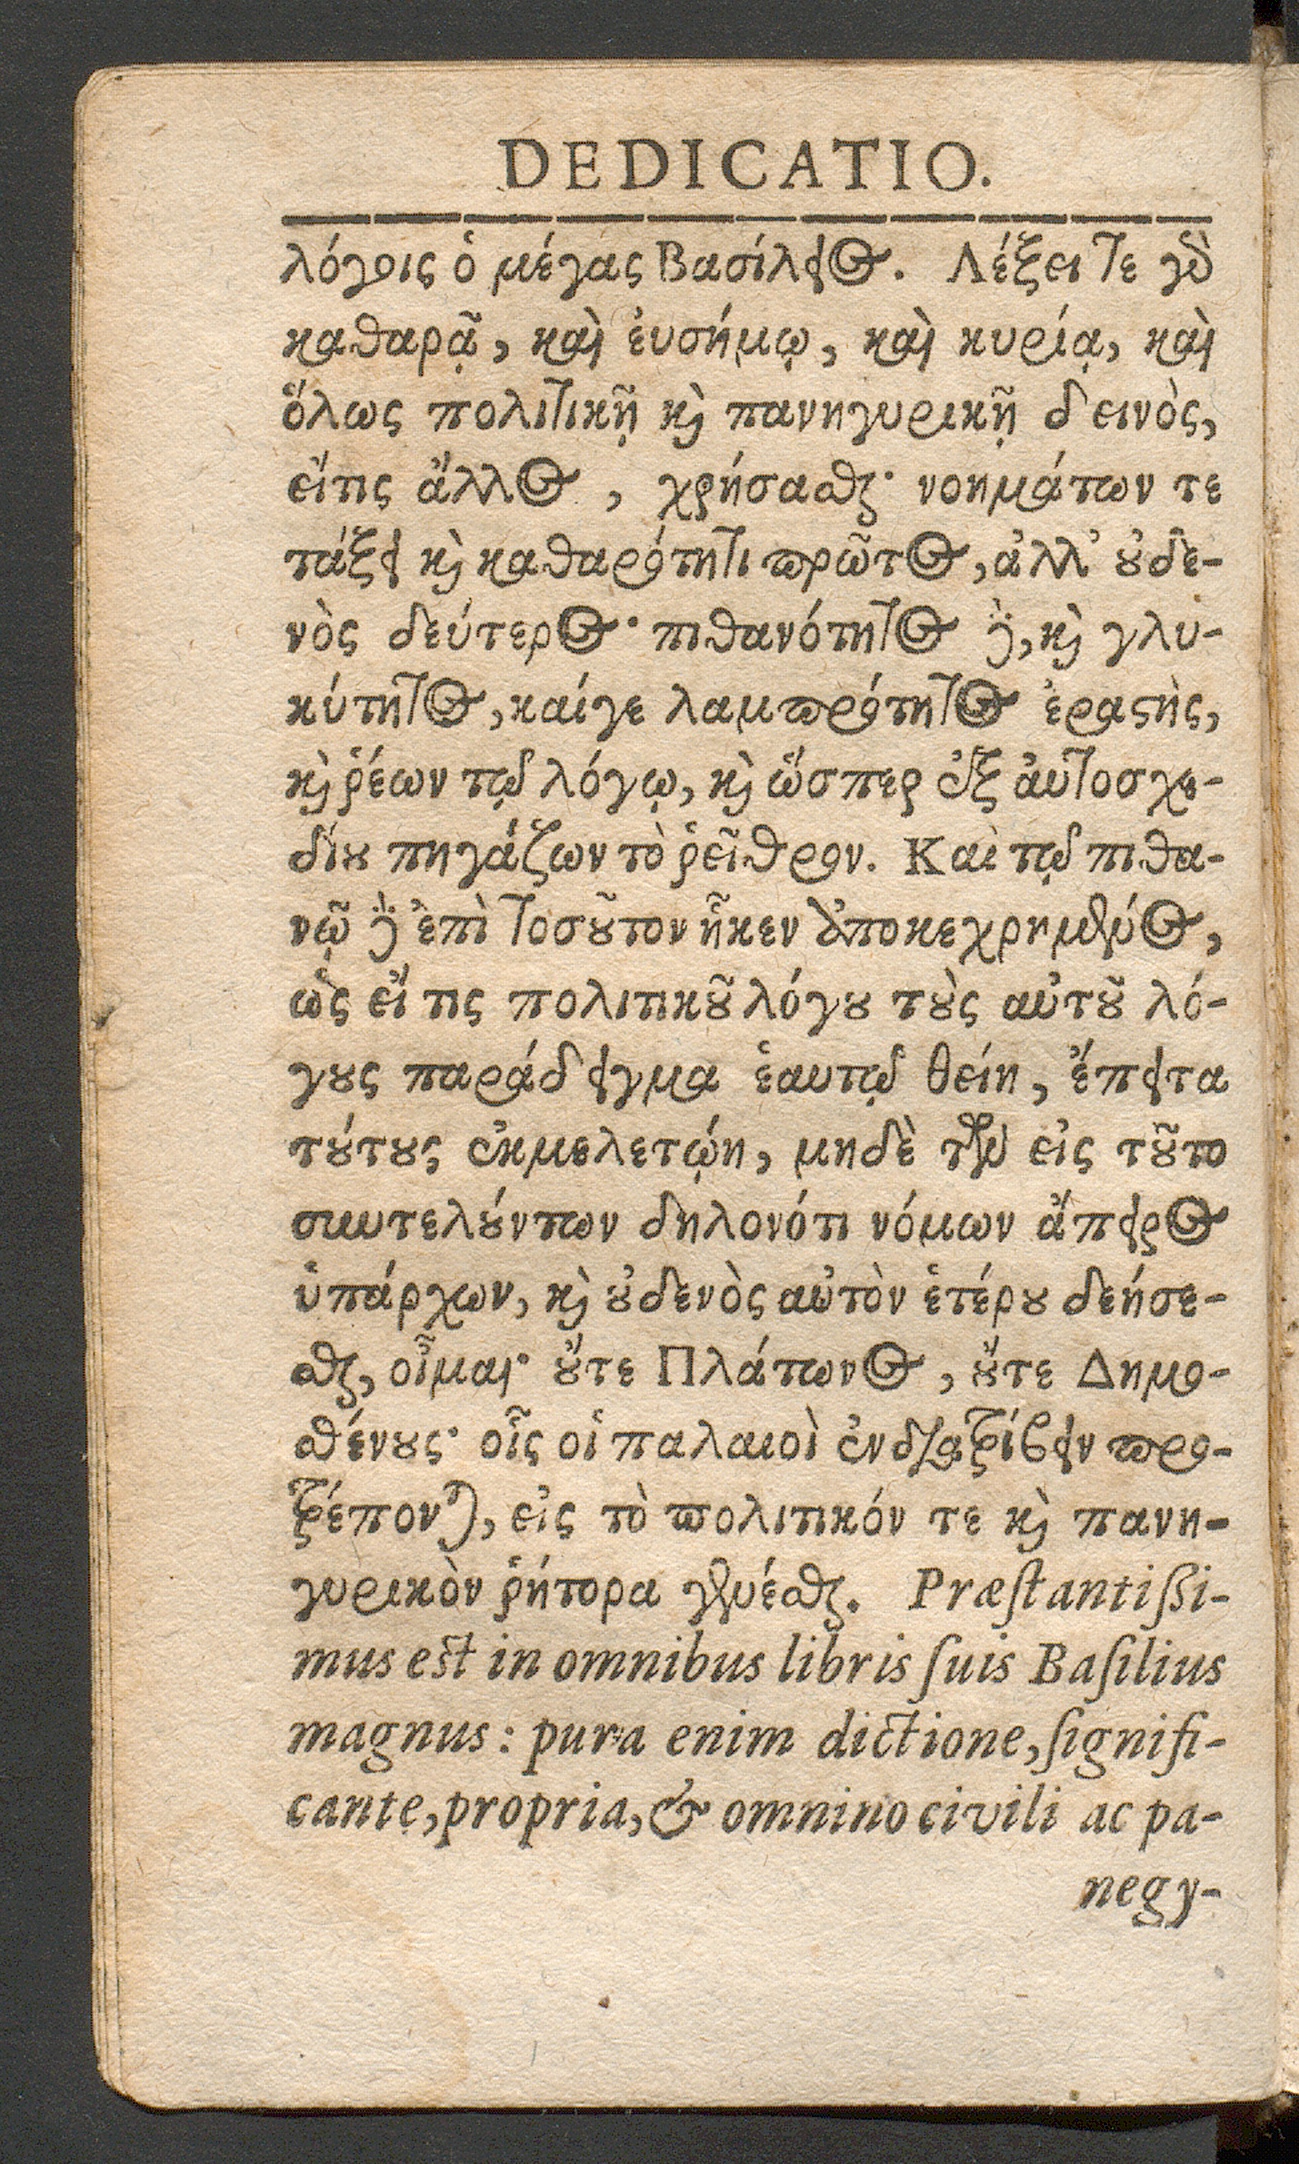 DEDICATIO.
λόγοις ὁ μέγας Βασίλειος. Λέξει τε γὰρ
καθαρᾷ, καὶ ἐυσήμῳ, καὶ κυρίᾳ, καὶ
ὅλως πολιτικῇ καὶ πανηγυρικῇ δεινὸς,
εἴτις ἄλλος, χρήσασθαι· νοημάτων τε
τάξει καὶ καθαρότητι πρῶτος, ἀλλ' οὐδε-
νὸς δεύτερος· πιθανότητος δὲ, καὶ γλυ-
κύτητος, καίγε λαμπρότητος ἐραστὴς,
καὶ ῥέων τῷ λόγῳ, καὶ ὥσπερ ἐξ αὐτοσχε-
δίου πηγάζων τὸ ῥεῖθρον. Καὶ τῷ πιθα-
νῷ δὲ ἐπὶ τοσοῦτον ἧκεν ἀποκεχρημένος,
ὡς εἴ τις πολιτικοῦ λόγου τοὺς αὐτοῦ λό-
γους παράδειγμα ἑαυτῷ θείη, ἔπειτα
τούτους ἐκμελετῴη, μηδὲ τῶν εἰς τοῦτο
συντελούντων δηλονότι νόμων ἄπειρος
ὑπάρχων, καὶ οὐδενὸς αὐτὸν ἑτέρου δεήσε-
σθαι, οἶμαι· οὔτε Πλάτωνος, οὔτε Δημο-
σθένους· οἷς οἱ παλαιοὶ ἐνδιατρίβειν προ-
τρέπονται, εἰς τὸ πολιτικόν τε καὶ πανη-
γυρικὸν ῥήτορα γενέσθαι. Præſtantiſſi-
mus est in omnibus libris ſuis Baſilius
magnus: pura enim dictione, ſignifi-
cante, propria, & omnino civili ac pa-
negy-